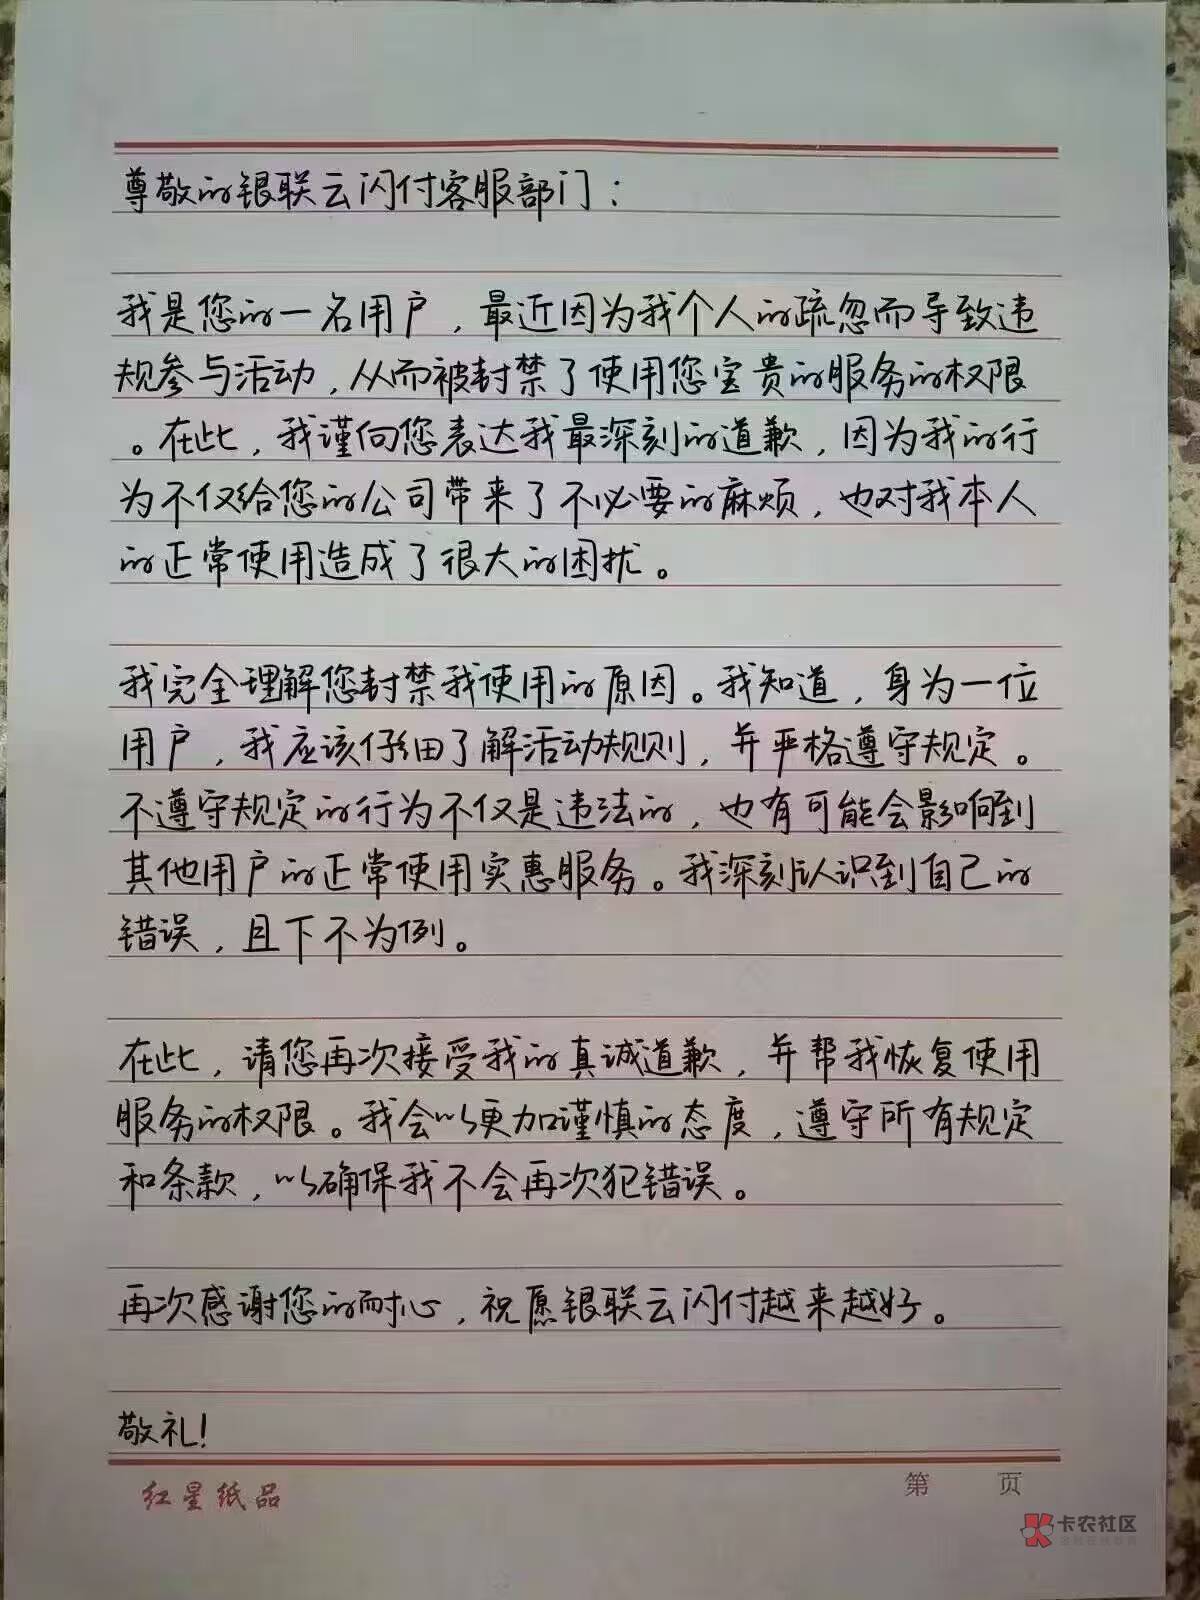 尊敬的银联云闪付客服部门：
我是您的一名用户，最近因为我个人的疏忽而导致违
规参与活动，从而被封禁了使用您宝贵的服务的权限
。在此，我谨向您表达我最深刻的道歉，因为我的行
为不仅给您的公司带来了不必要的麻烦，也对我本人
的正常使用造成了很大的困扰。
我完全理解您封禁我使用的原因。我知道，身为一位
用户，我应该仔细了解活动规则，并严格遵守规定。
不遵守规定的行为不仅是违法的，也有可能会影响到
其他用户的正常使用实惠服务。我深刻认识到自己的
错误，且下不为例。
在此，请您再次接受我的真诚道歉，并帮我恢复使用
服务的权限。我会以更加谨慎的态度，遵守所有规定
和条款，以确保我不会再次犯错误。
再次感谢您的耐心，祝愿银联云闪付越来越好。
敬礼！
红星纸品
第 页
卡农社区